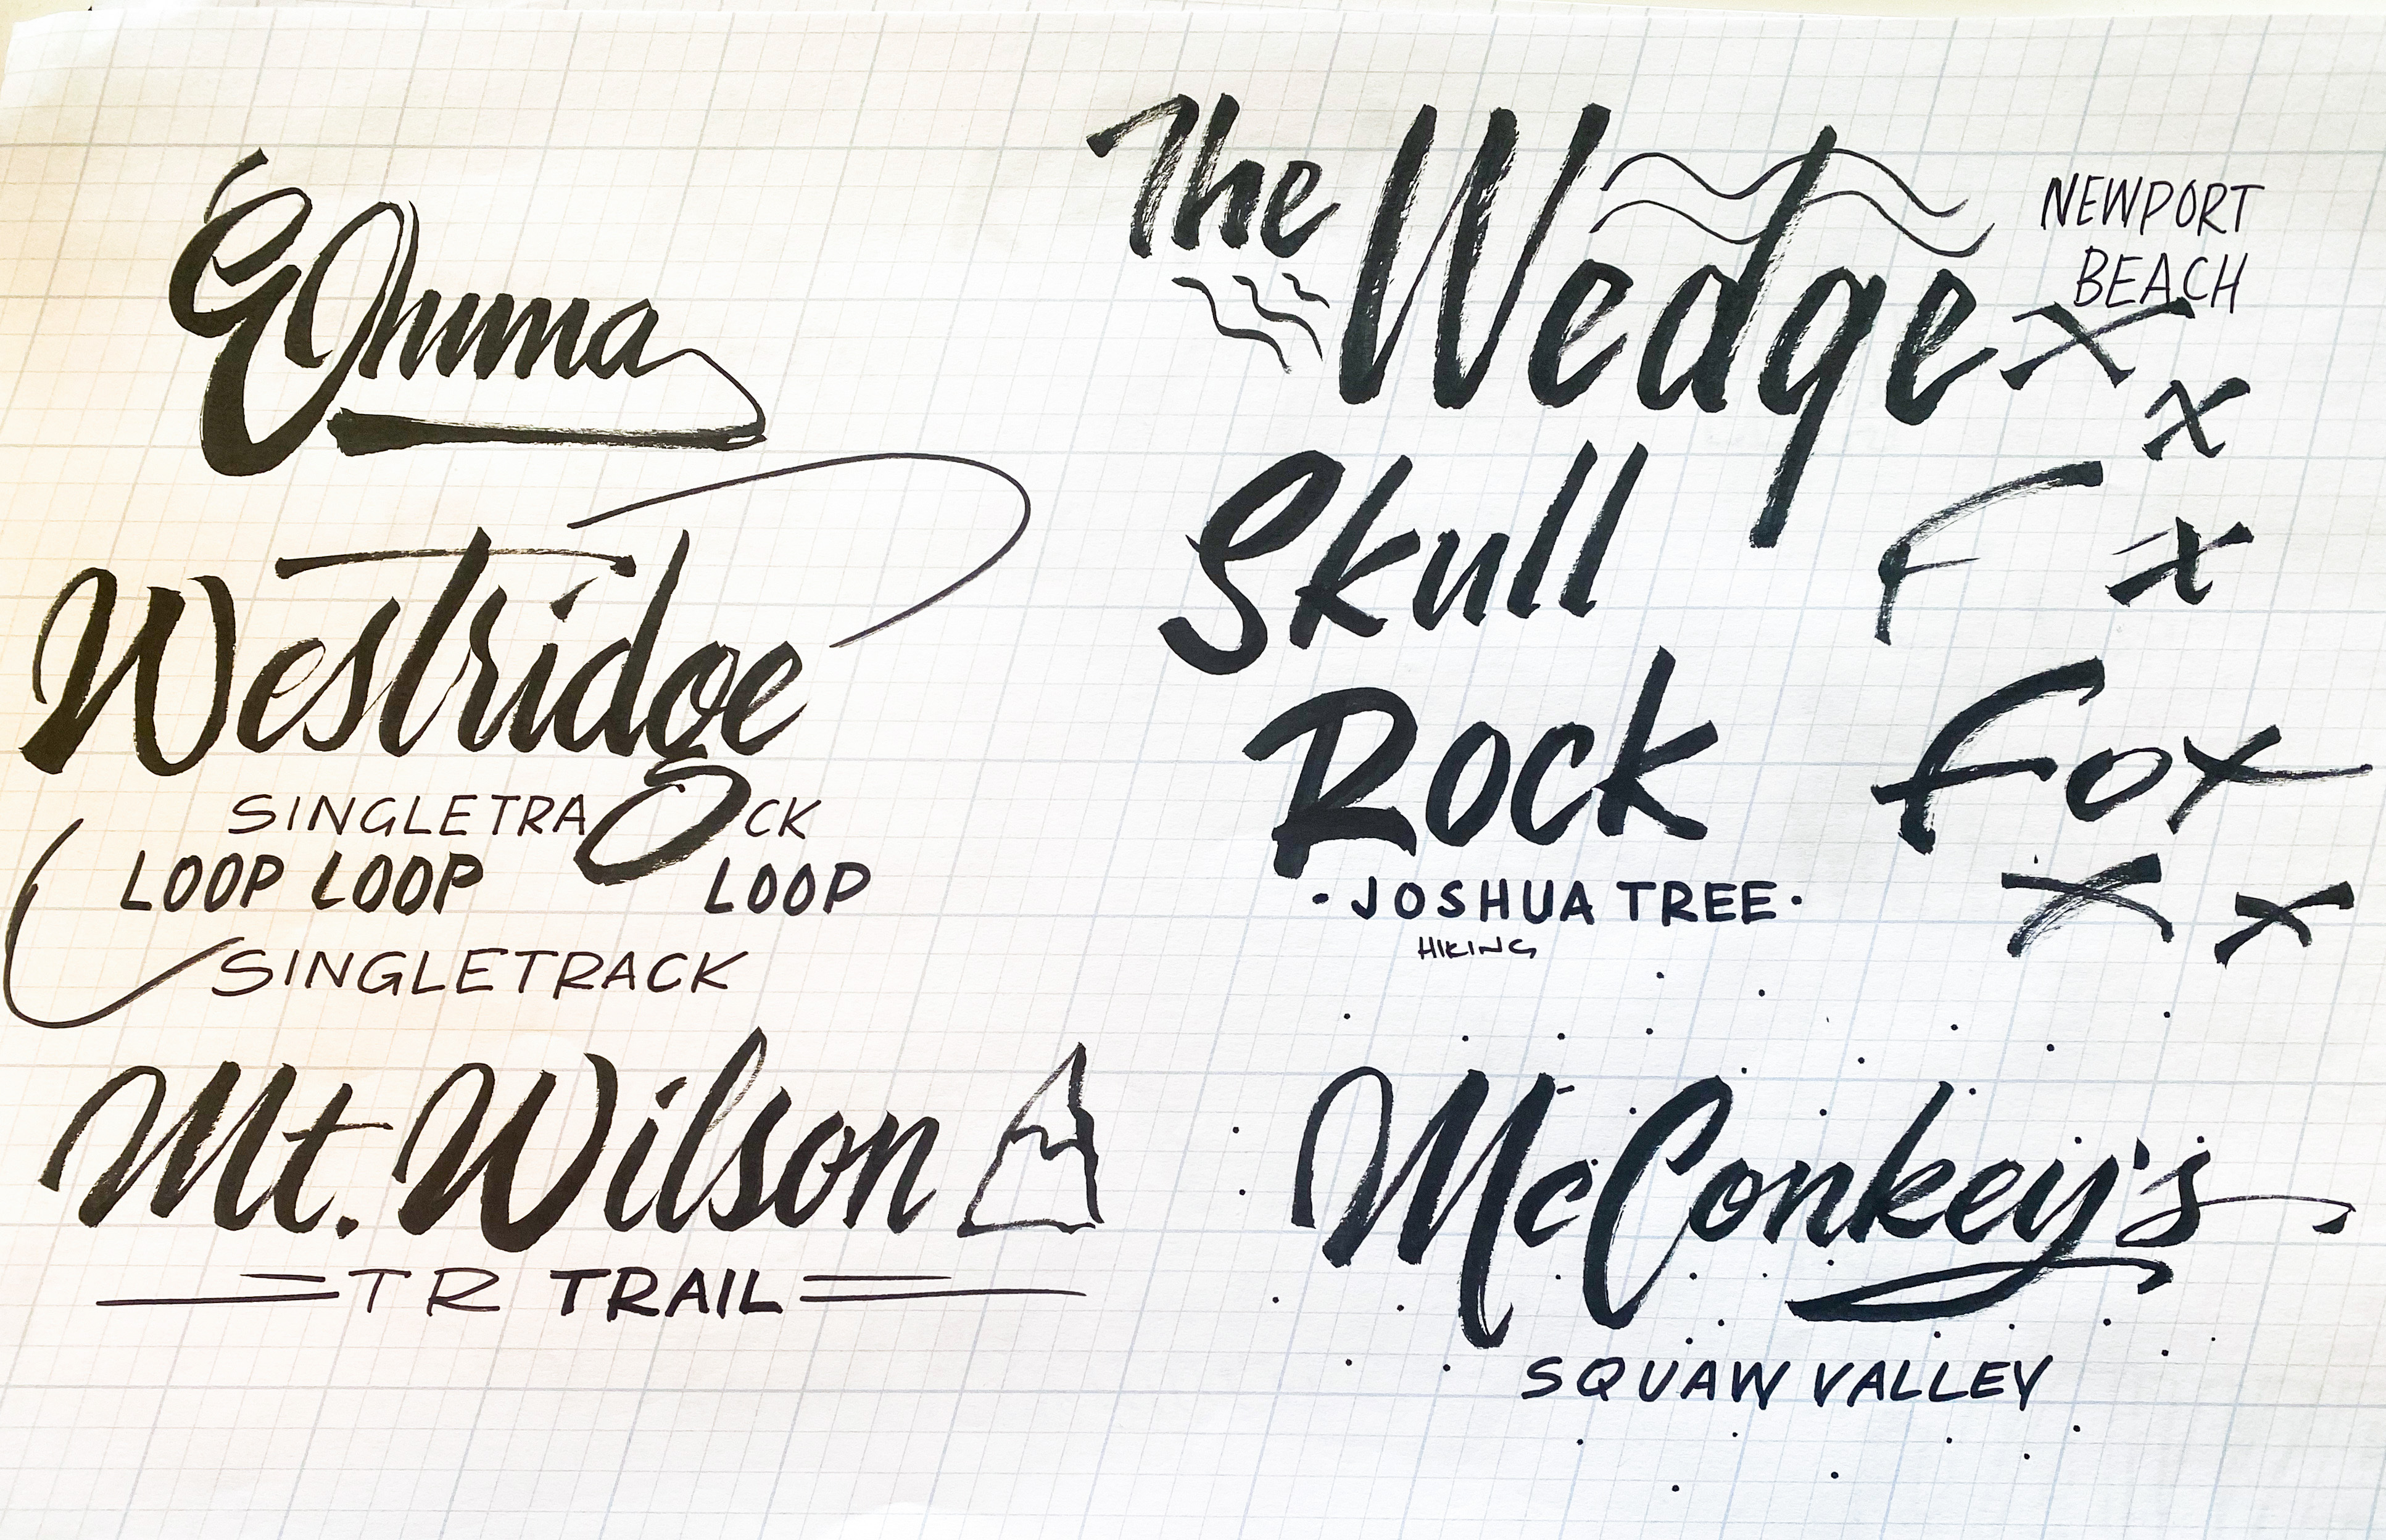 Westridge
SINGLETRACK
LOOP LOOP LOOP
SINGLETRACK
Mt. Wilson
TR TRAIL
The Wedge
NEWPORT
BEACH
x
x
Skull
F x
Rock
Fox
x x
·JOSHUA TREE·
HIKING
McConkey's
SQUAW VALLEY